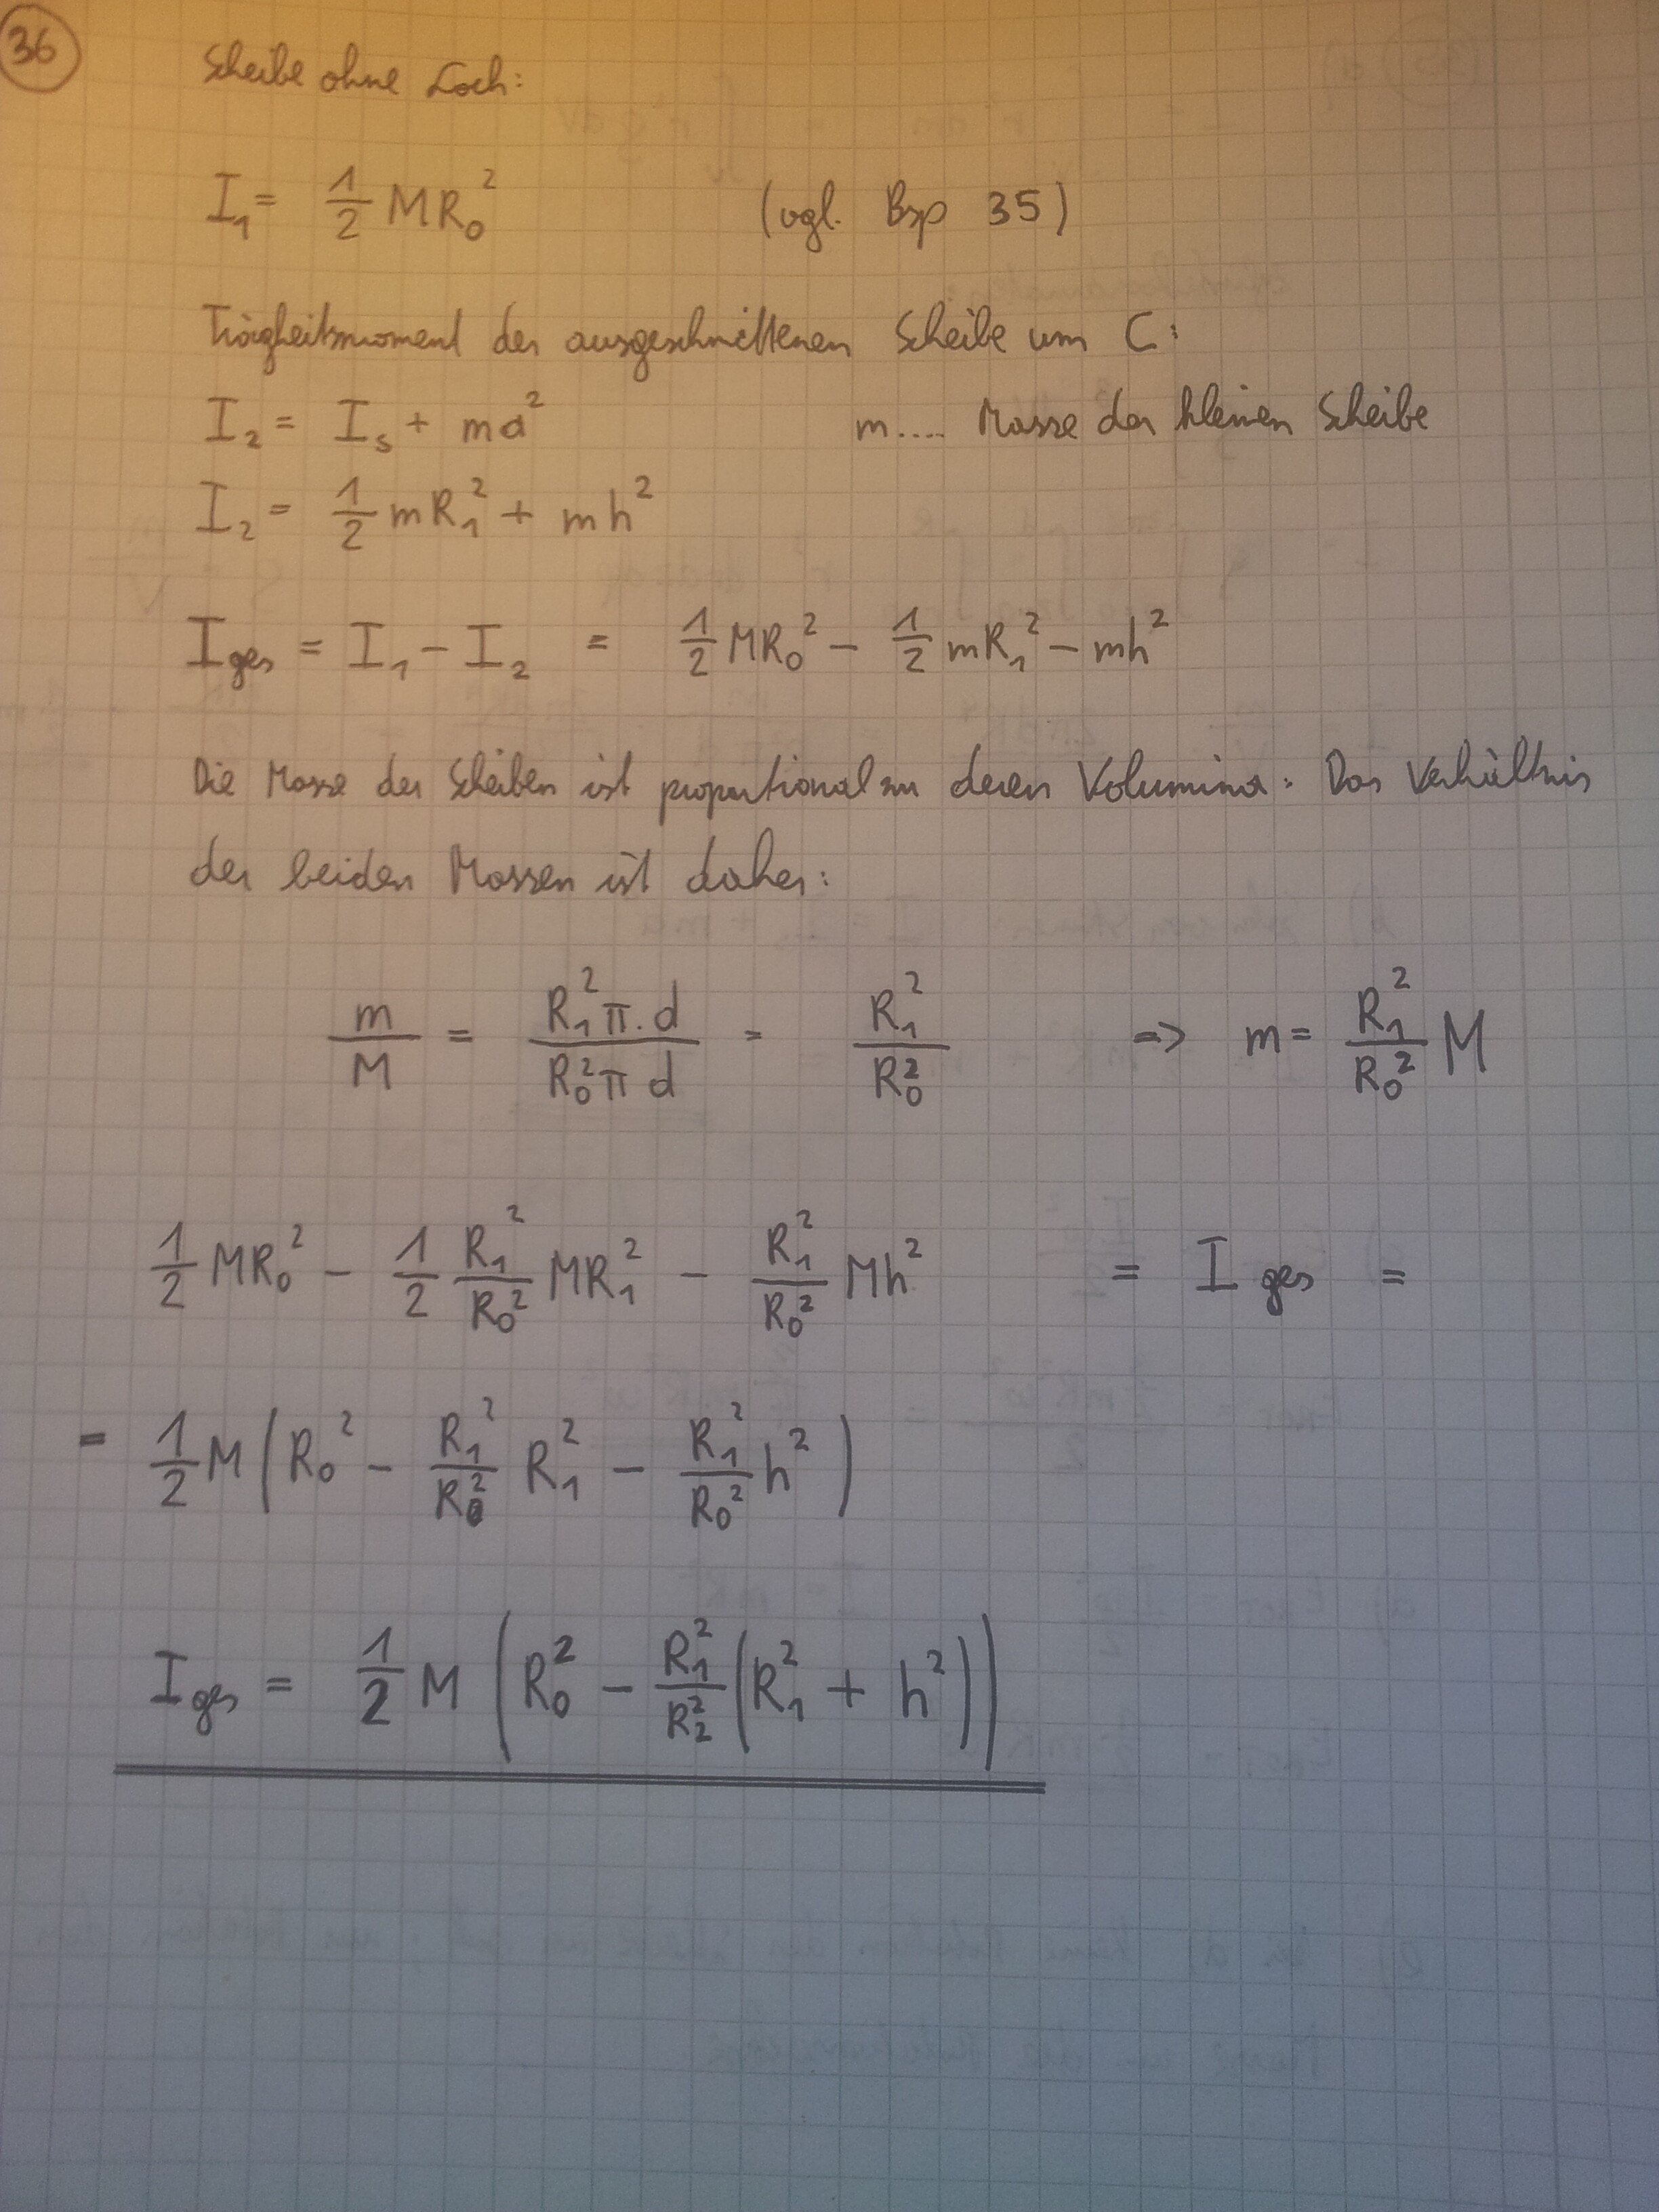 36
Scheibe ohne Loch:
I₁ = 1/2 MR₀² (vgl. Bsp 35)
Trägheitsmoment der ausgeschnittenen Scheibe um C:
I₂ = Iₛ + ma² m.... Masse der kleinen Scheibe
I₂ = 1/2 mR₁² + mh²
I ges = I₁ - I₂ = 1/2 MR₀² - 1/2 mR₁² - mh²
Die Masse der Scheiben ist proportional zu deren Volumina: Das Verhältnis
der beiden Massen ist daher:
m/M = R₁²π·d / R₀²πd = R₁²/R₀² => m = R₁²/R₀² M
1/2 MR₀² - 1/2 R₁²/R₀² MR₁² - R₁²/R₀² Mh² = I ges =
= 1/2 M(R₀² - R₁²/R₀² R₁² - R₁²/R₀² h²)
I ges = 1/2 M (R₀² - R₁²/R₂² (R₁² + h²))